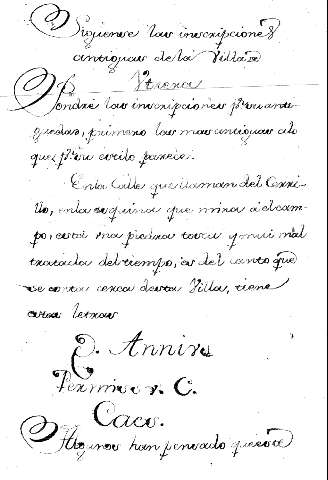 Siguense las inscripciones
antiguas de la Villa de
Utrera
Pondré las inscripciones p.r su anti-
guedad, primero las mas antiguas a lo
que p.r su estilo parece.
En la Calle que llaman del Cerri-
llo, en la esquina que mira a el cam-
po, està una piedra tosca y mui mal
tratada del tiempo, es del canto que
se corta cerca desta Villa, tiene
estas letras
D. Annivs
Permiss v. C.
Caco.
Algunos han pensado que este